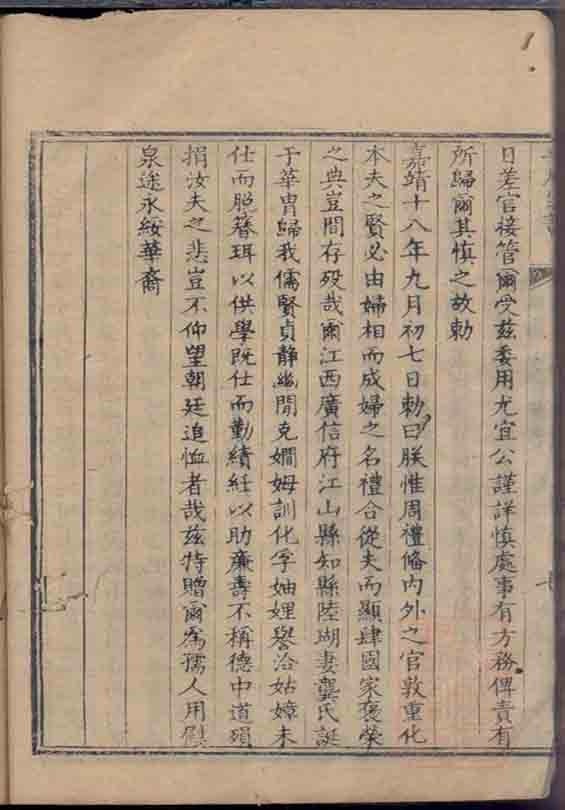 日差官接管爾受茲委用尤宜公謹詳慎處事有方務俾責有
所歸爾其慎之故勅
嘉靖十八年九月初七日勅曰朕惟周禮俻內外之官敦重化
本夫之賢必由婦相而成婦之名禮合從夫而顯肆國家褒榮
之典豈間存歿哉爾江西廣信府江山縣知縣陸瑚妻龔氏誕
于華胄歸我儒賢貞靜幽閒克嫺姆訓化孚妯娌譽洽姑嫜未
仕而脫簪珥以供學既仕而勤績紝以助廉壽不稱德中道殞
捐汝夫之悲豈不仰望朝廷追恤者哉茲特贈爾為孺人用慰
泉途永綏華裔